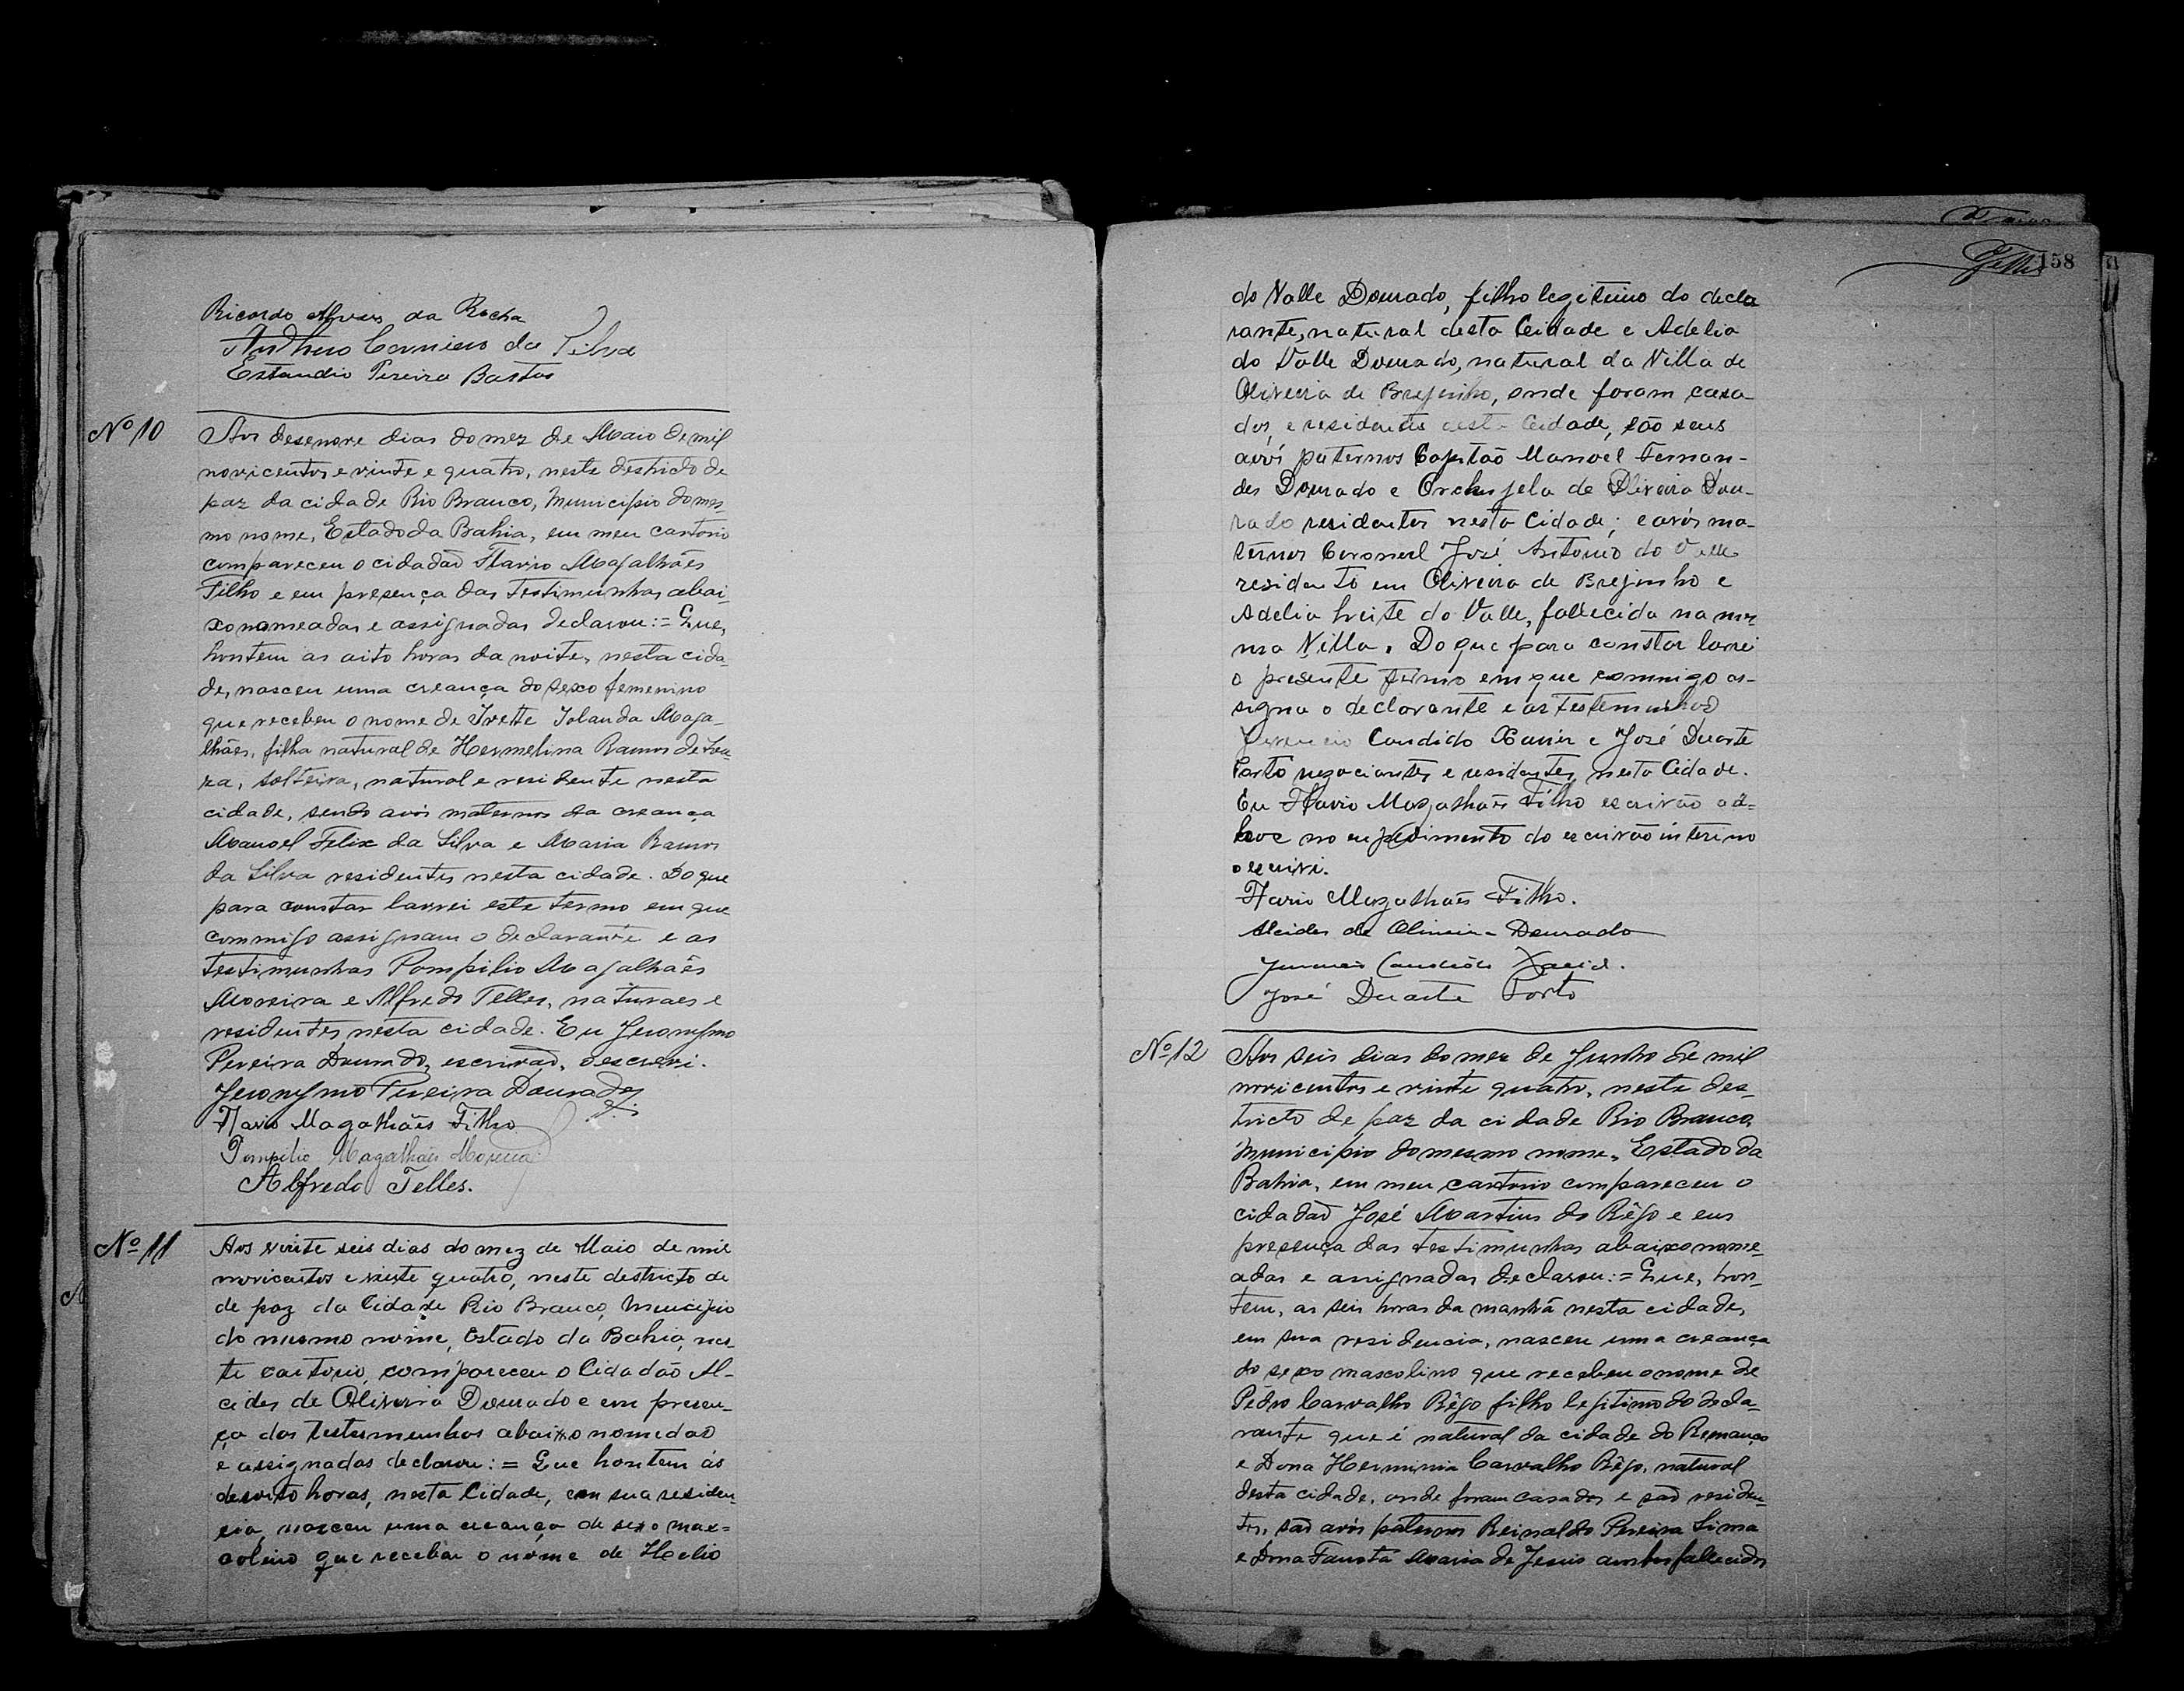 Ricardo Alves da Rocha
Arthur Carneiro da Silva
Pereira Bastos
Nº 10
Aos desenove dias do mez de Maio de mil
novicentos e vinte e quatro, neste destricto de
paz da cidade Rio Branco, Municipio do mes-
mo nome, Estado da Bahia, em meu cartorio
compareceu o cidadaõ Flavio Magalhães
Filho e em presença das testimunhas abai-
xo nomeadas e assignadas declarou:= Que,
hontem as oito horas da noite, nesta cida-
de, nasceu uma creança do sexo femenino
que recebeu o nome de Ivette Iolanda Maga-
lhães, filha natural de Hermelina Ramos de Sou-
za, solteira, natural e residente nesta
cidade, sendo avós maternos da creança
Manoel Felix da Silva e Maria Ramos
da Silva residentes nesta cidade. Do que
para constar lavrei este termo em que
commigo assignam o declarante e as
testimunhas Pompilio Magalhães
Moreira e Alfredo Telles, naturaes e
residentes nesta cidade. Eu Jeronymo
Pereira Dourado, escrivaõ, o escrevi.
Jeronymo Pereira Dourado
Flavio Magalhães Filho
Pompilio Magalhães Moreira
Alfredo Telles.
Nº 11
Aos vinte seis dias do mez de Maio de mil
novicentos e vinte quatro, neste destricto de
de paz da Cidade Rio Branco, Municipio
do mesmo nome, Estado da Bahia, nes-
te cartorio, compareceu o Cidadão Al-
cides de Oliveira Dourado e em presen-
ça das testemunhas abaixo nomedas
e assignadas declarou:= Que hontem ás
desoito horas, nesta Cidade, em sua residen-
cia, nasceu uma creança de sexo mas=
colino que recebeu o nome de Helio
158
do Valle Dourado, filho legitimo do decla
rante, natural desta Ceidade e Adelia
do Valle Dourado, natural da Villa de
Oliveira de Brejinho, onde foram casa-
dos, e residentes nesta Cidade, são seus
avós paternos Capitão Manoel Fernan-
des Dourado e Archangela de Oliveira Dou-
rado residentes nesta Cidade; e avós ma-
ternos Coronel José Antonio do Valle
residente em Oliveira de Brejinho e
Adelia Leite do Valle, fallecida na mes
ma Villa. Do que para constar lavrei
o presente termo em que commigo as-
signa o declarante e as testemunhas
Candido Xavier e José Duarte
Porto negociantes e residentes nesta Cidade.
Eu Flavio Magalhães Filho escrivão ad-
hoc no empedimento do escrivão interino
o escrivi.
Flavio Magalhães Filho.
Alcides de Oliveira Dourado
Candido Xavier.
José Duarte Porto
Nº 12
Aos seis dias do mez de Junho de mil
novicentos e vinte quatro, neste des-
tricto de paz da cidade Rio Branco,
Municipio do mesmo nome, Estado da
Bahia, em meu cartorio compareceu o
cidadaõ José Martins do Rêgo e em
presença das testimunhas abaixo nome-
adas e assignadas declarou:= Que, hon-
tem, as seis horas da manhã nesta cidade,
em sua residencia, nasceu uma creança
do sexo mascolino que recebeu o nome de
Pedro Carvalho Rêgo filho legitimo do decla-
rante que é natural da cidade do Remanço
e Dona Herminia Carvalho Rêgo, natural
desta cidade, onde foram casados e saõ residen-
tes, saõ avós paternos Reinaldo Pereira Lima
e Dona Fausta Maria de Jesus ambos fallecidos